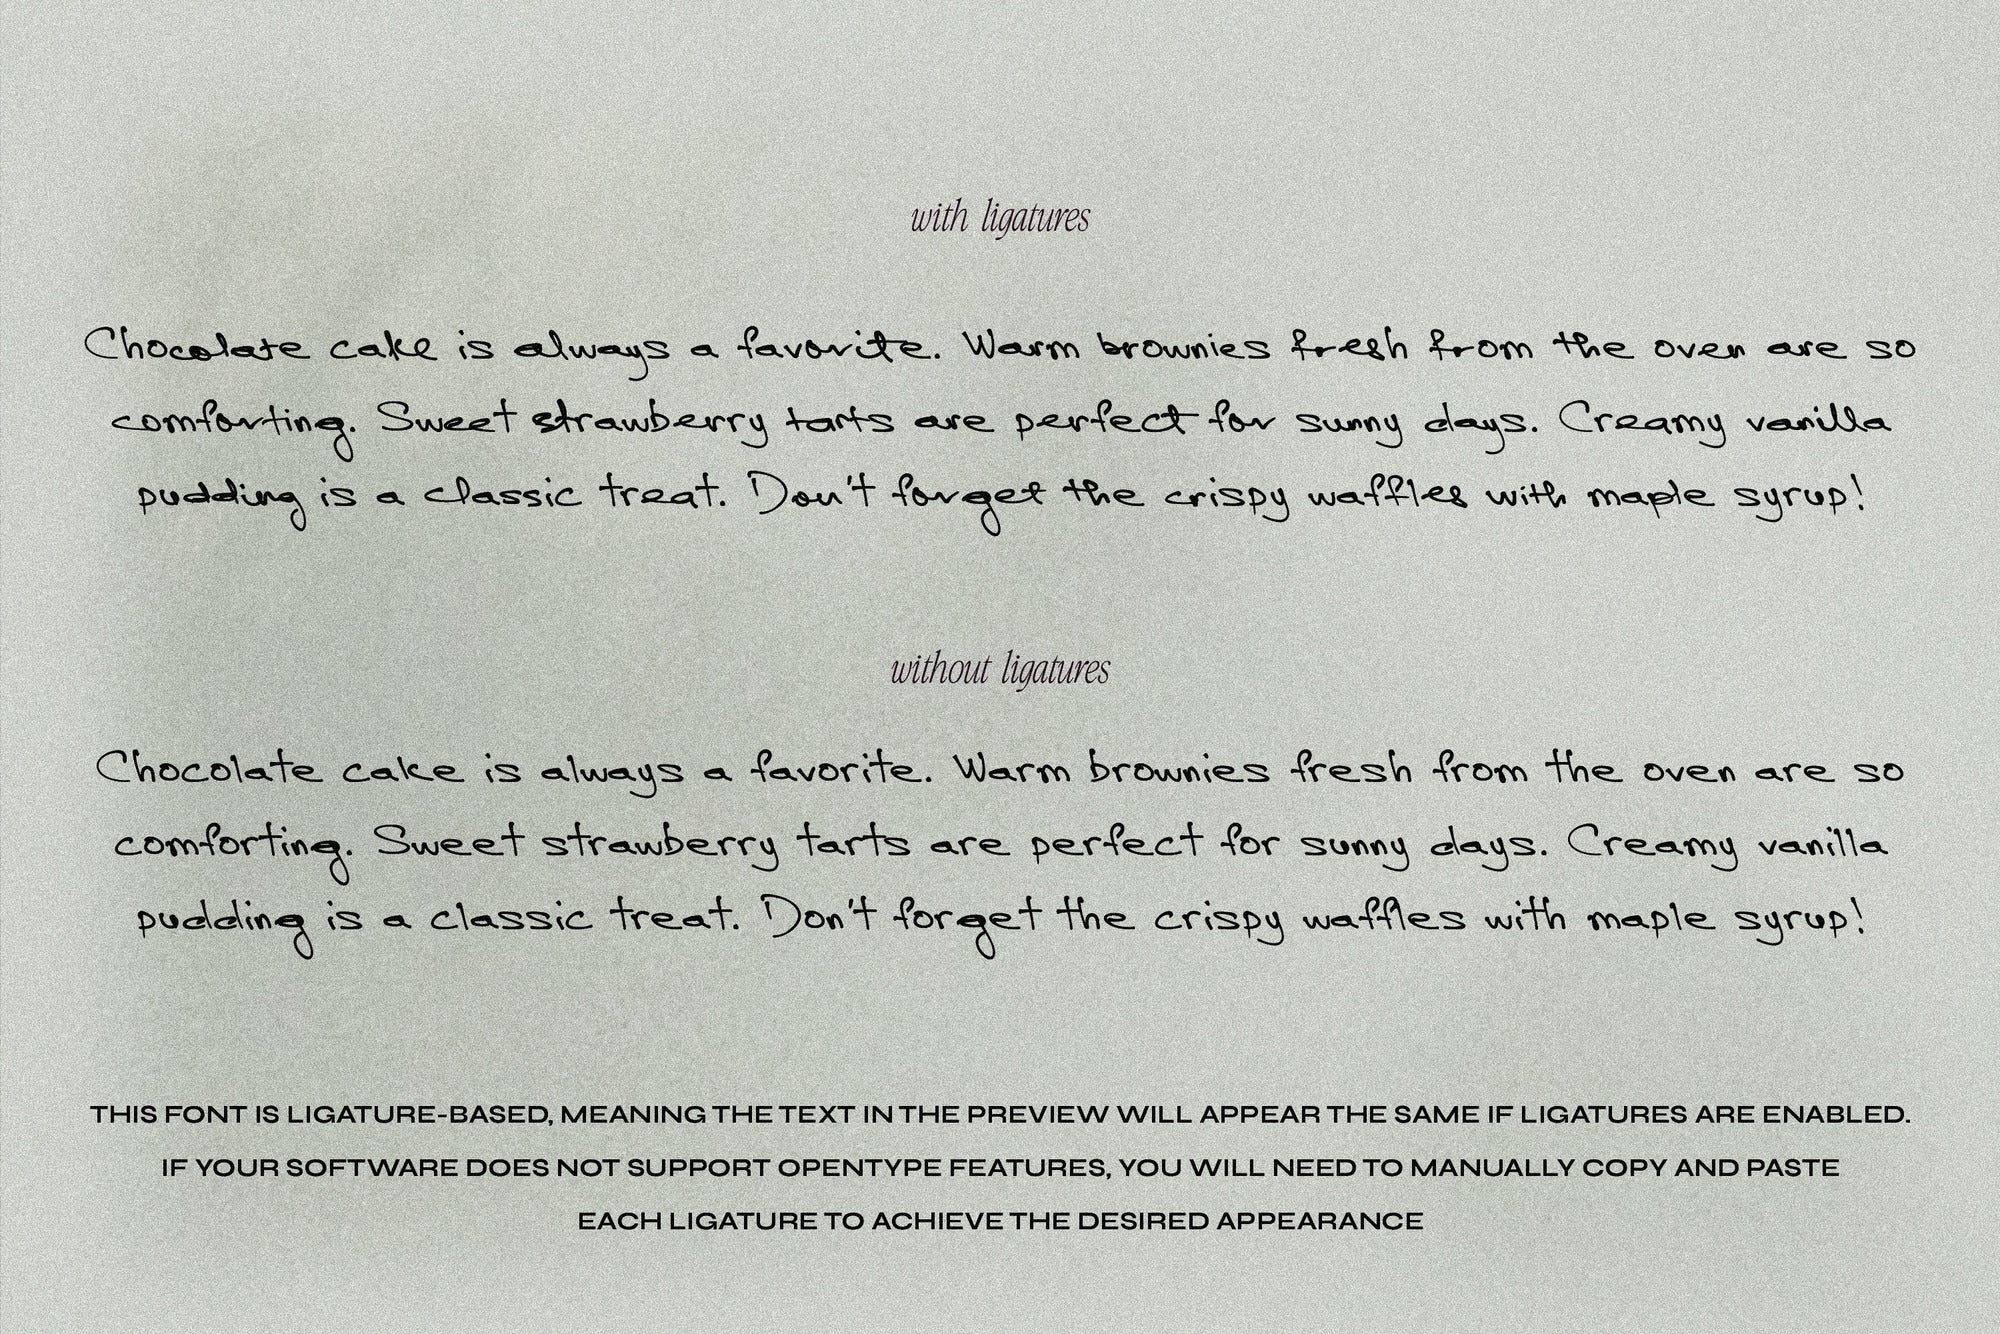 with ligatures
Chocolate cake is always a favorite. Warm brownies fresh from the oven are so
comforting. Sweet strawberry tarts are perfect for sunny days. Creamy vanilla
pudding is a classic treat. Don't forget the crispy waffles with maple syrup!
without ligatures
Chocolate cake is always a favorite. Warm brownies fresh from the oven are so
comforting. Sweet strawberry tarts are perfect for sunny days. Creamy vanilla
pudding is a classic treat. Don't forget the crispy waffles with maple syrup!
THIS FONT IS LIGATURE-BASED, MEANING THE TEXT IN THE PREVIEW WILL APPEAR THE SAME IF LIGATURES ARE ENABLED.
IF YOUR SOFTWARE DOES NOT SUPPORT OPENTYPE FEATURES, YOU WILL NEED TO MANUALLY COPY AND PASTE
EACH LIGATURE TO ACHIEVE THE DESIRED APPEARANCE